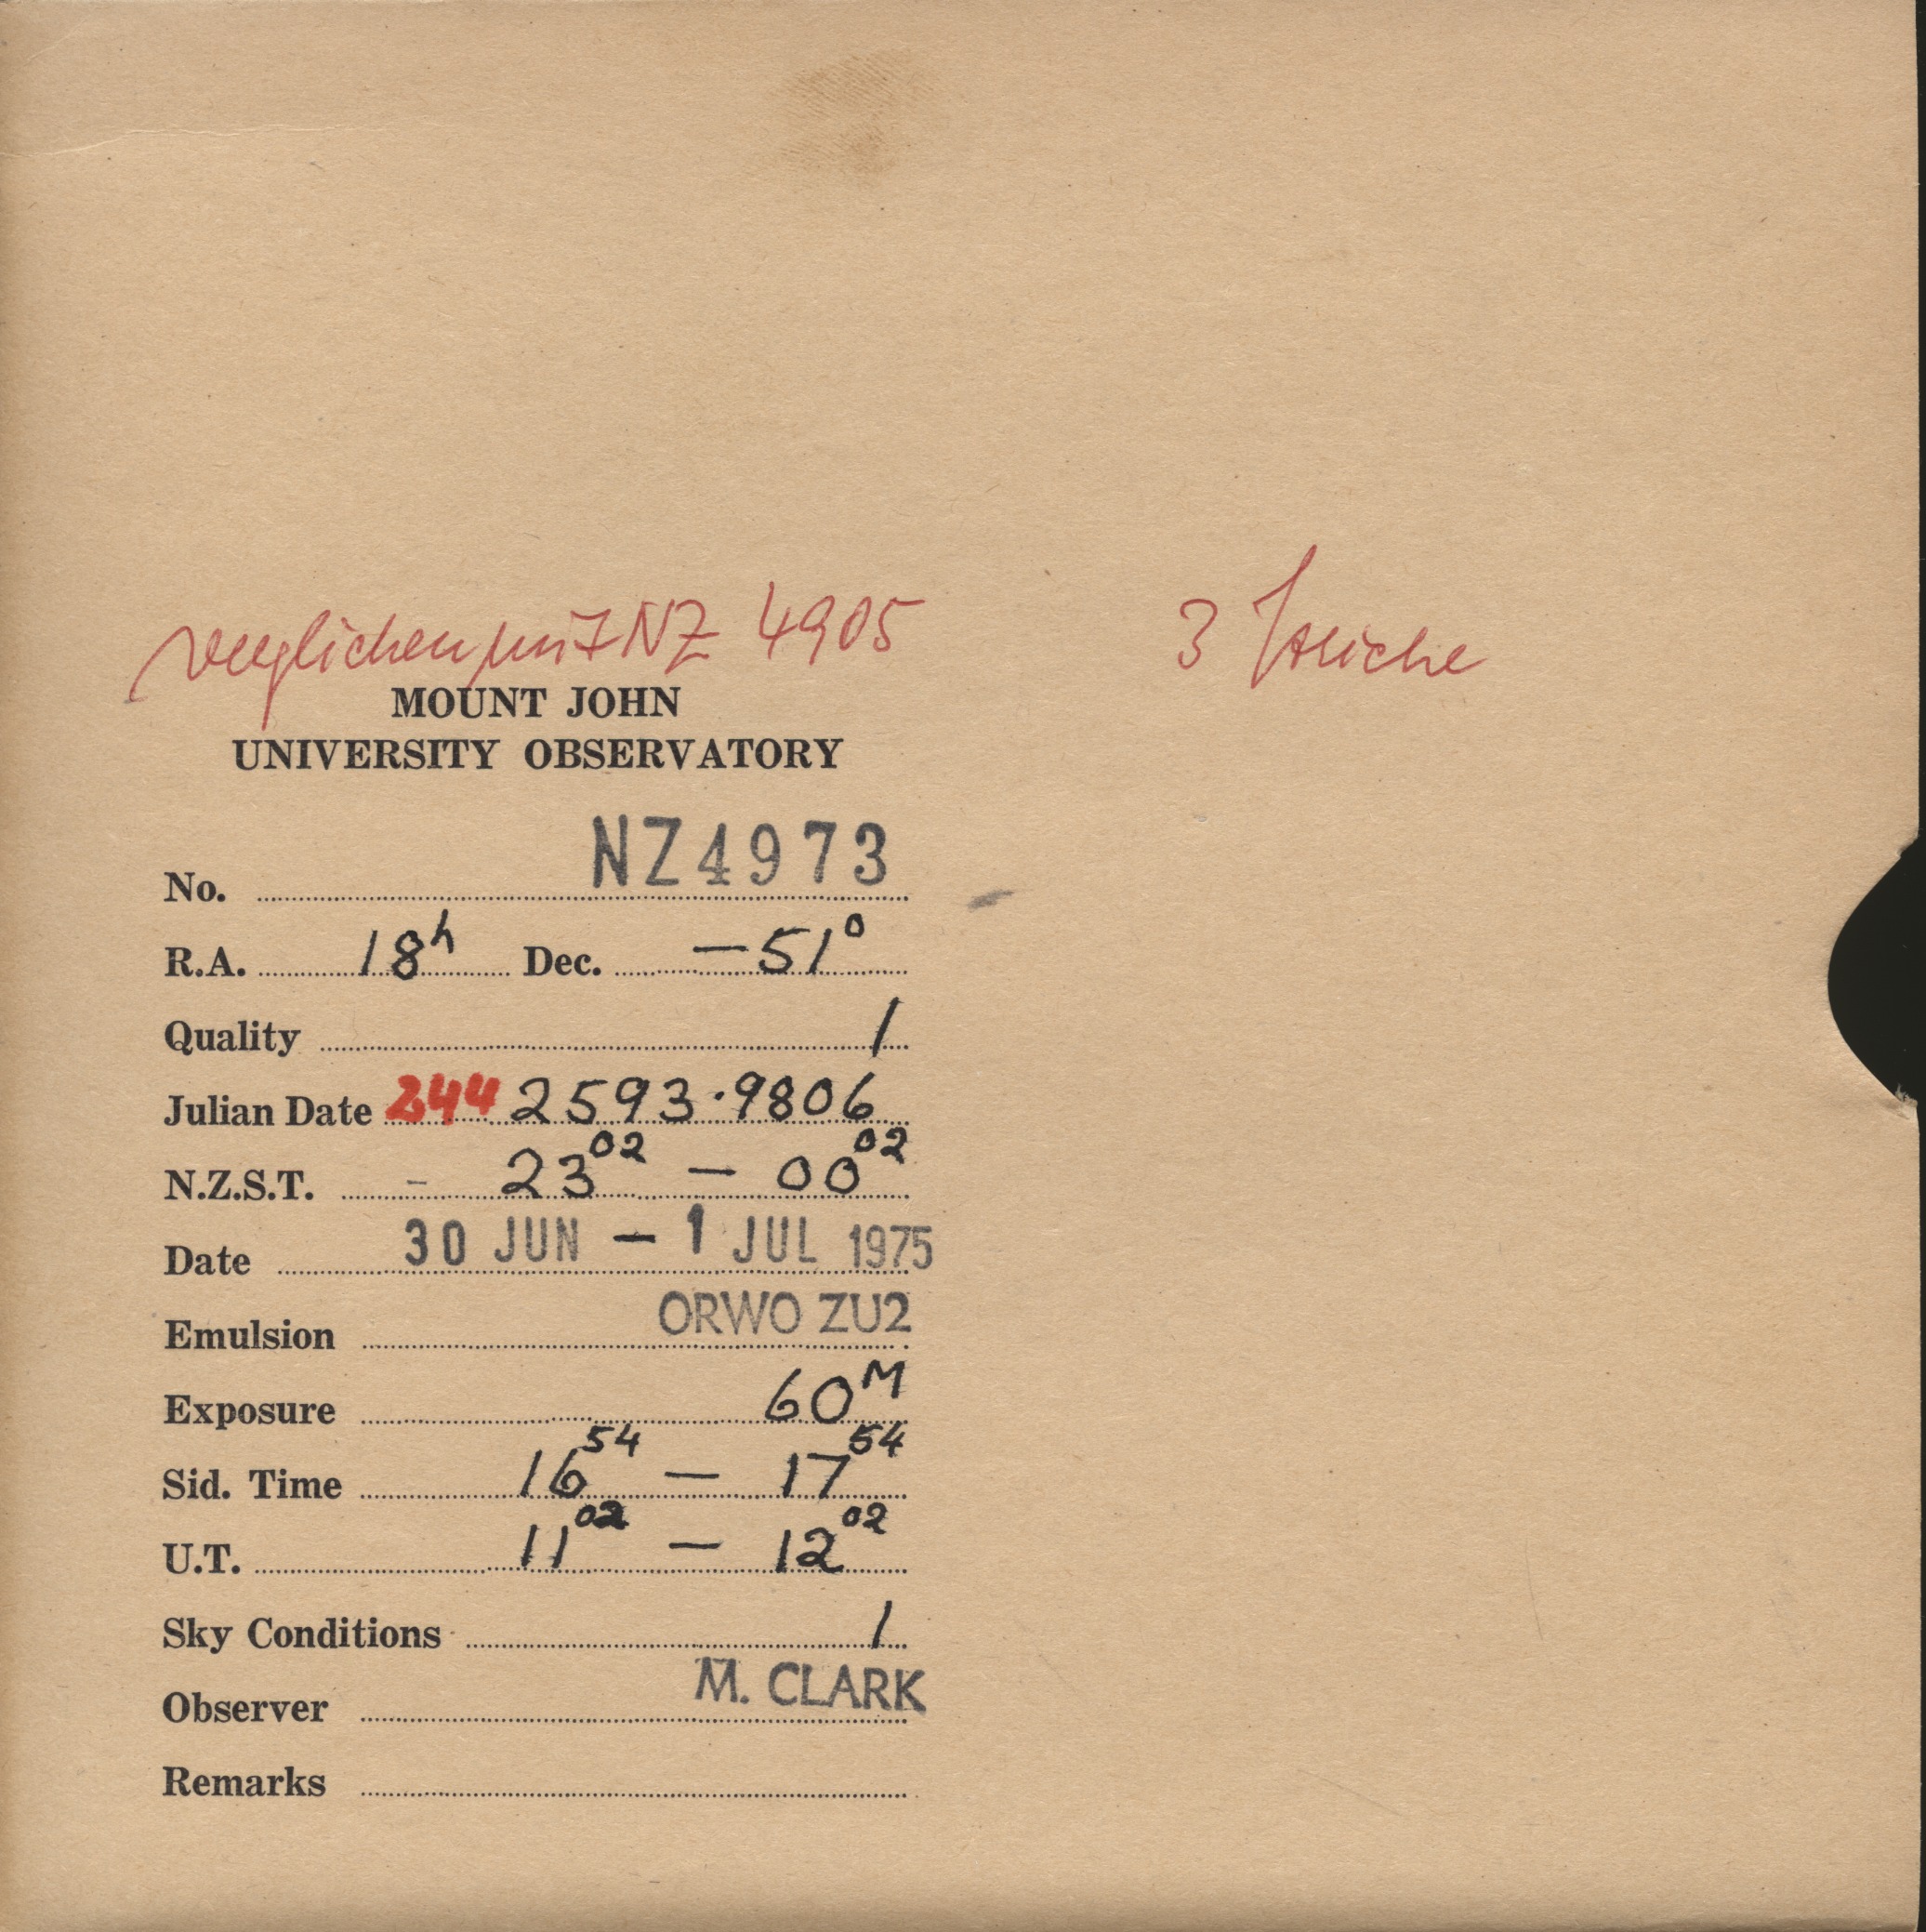 verglichen mit NZ 4905 3 Striche
MOUNT JOHN
UNIVERSITY OBSERVATORY
No. NZ4973
R.A. 18h Dec. -51°
Quality 1
Julian Date 244 2593.9806
N.Z.S.T. - 23 02 - 00 02
Date 30 JUN - 1 JUL 1975
Emulsion ORWO ZU2
Exposure 60M
Sid. Time 16 54 - 17 54
U.T. 11 02 - 12 02
Sky Conditions 1
Observer M. CLARK
Remarks